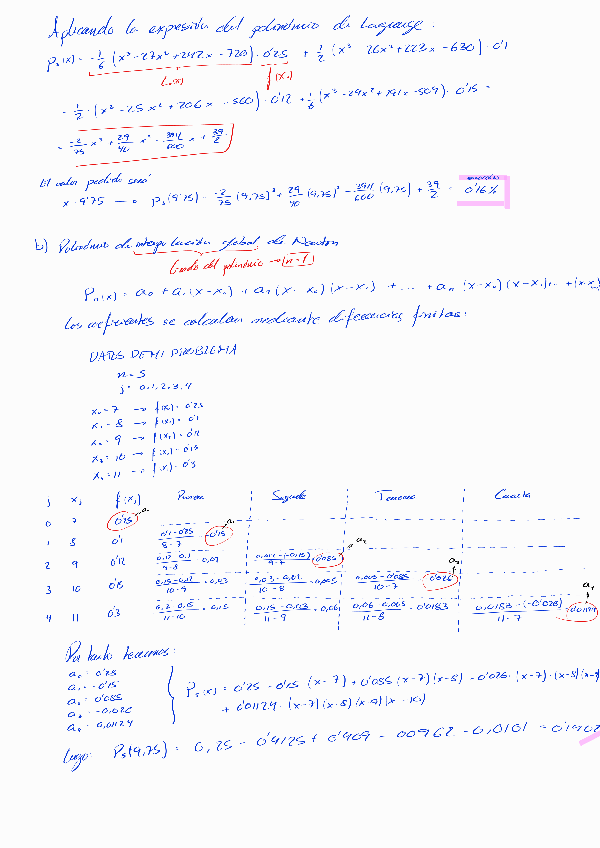 Aplicando la expresión del polinomio de Lagrange.
P₃(x) = -1/6 (x³ - 27x² + 242x - 720) · 0'25 + 1/2 (x³ - 26x² + 223x - 630) · 0'1
L₀(x) f(x₀)
- 1/2 · (x³ - 25x² + 206x - 560) · 0'12 + 1/6 (x³ - 24x² + 191x - 504) · 0'15 =
= -2/75 x³ + 29/40 x² - 3911/600 x + 39/2
El valor pedido será
x = 9'75 → P₃(9'75) = -2/75 (9,75)³ + 29/40 (9,75)² - 3911/600 (9,75) + 39/2 = 0'16%
b) Polinomio de interpolación global de Newton
Grado del polinomio → n-1
Pₙ(x) = a₀ + a₁(x-x₀) + a₂(x-x₀)(x-x₁) + ... + aₙ(x-x₀)(x-x₁)...
Los coeficientes se calculan mediante diferencias finitas.
DATOS DE MI PROBLEMA
n = 5
j = 0,1,2,3,4
x₀ = 7 → f(x₀) = 0'25
x₁ = 8 → f(x₁) = 0'1
x₂ = 9 → f(x₂) = 0'12
x₃ = 10 → f(x₃) = 0'15
x₄ = 11 → f(x) = 0'3
j xj f(xj) Primera Segunda Tercera Cuarta
0 7 0'25 a₀
1 8 0'1 0'1-0'25/8-7 = -0'15 a₁
2 9 0'12 0'12-0'1/9-8 = 0,02 0,02-(-0'15)/9-7 = 0'085 a₂
3 10 0'15 0'15-0'12/10-9 = 0,03 0,03-0,02/10-8 = 0,005 0,005-0'085/10-7 = -0'026 a₃
4 11 0'3 0'3-0'15/11-10 = 0,15 0,15-0,03/11-9 = 0,06 0,06-0,005/11-8 = 0,0183 0,0183-(-0'026)/11-7 a₄
Por tanto tenemos:
a₀ = 0'25
a₁ = -0'15
a₂ = 0'085
a₃ = -0,026
a₄ = 0,01124
P₅(x) = 0'25 - 0'15 (x-7) + 0'085 (x-7)(x-8) - 0'026 · (x-7)·(x-8)(x-9)
+ 0'01124 · (x-7)(x-8)(x-9)(x-10)
Luego: P₅(9,75) = 0,25 - 0'4125 + 0'409 - 00962 - 0,0101 = 0'1902